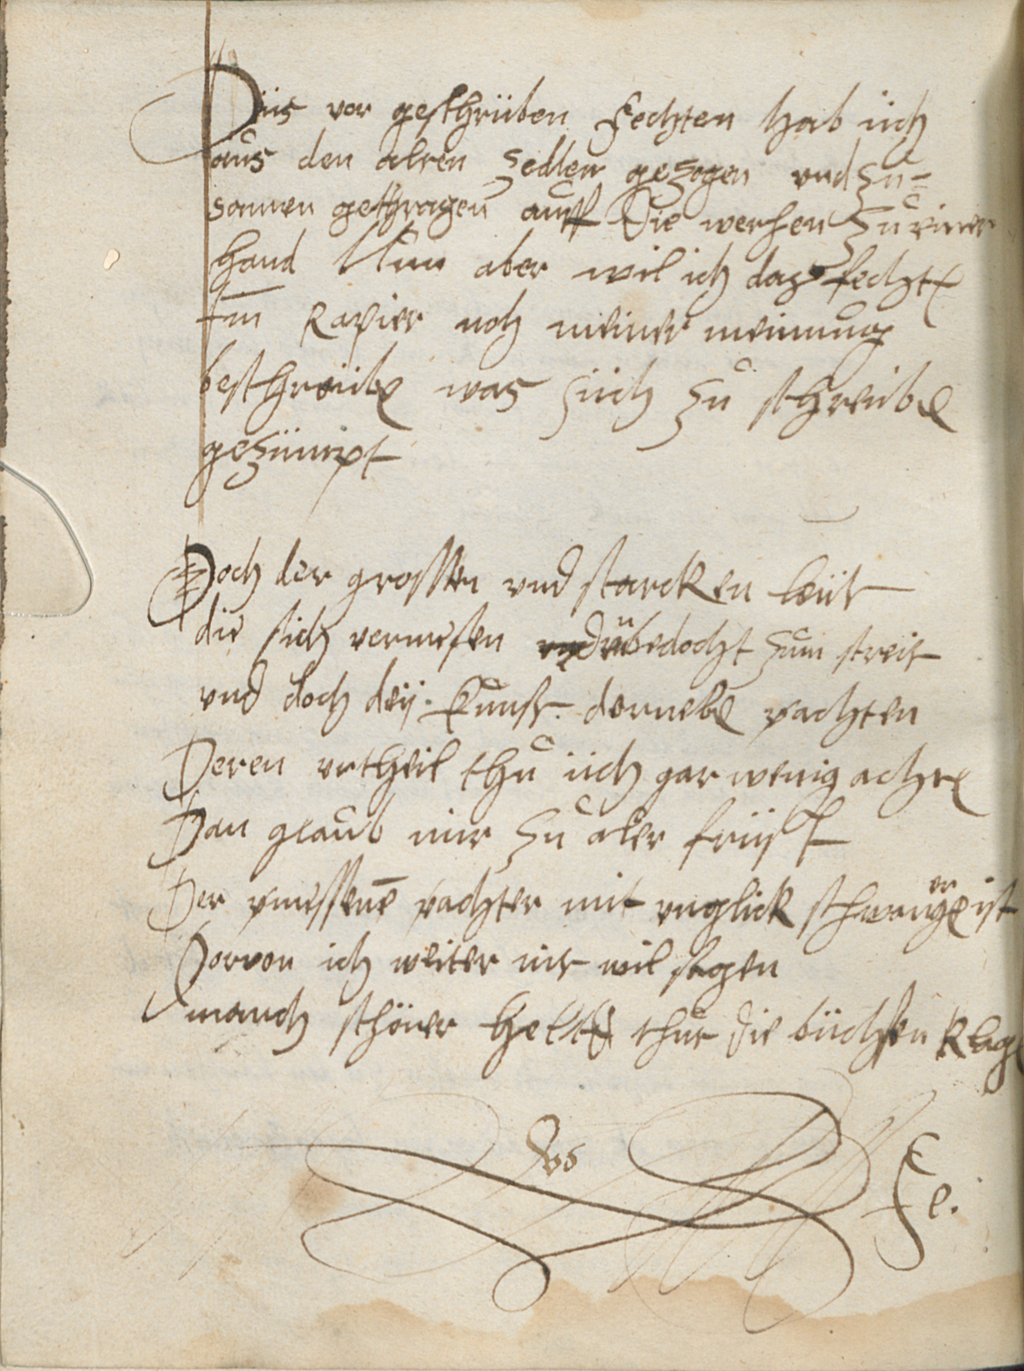 Düs vor geschrüben fechten hab üch
aus den alten zedlen gezogen vnd zu=
samen gethragen auff die wehren zu einer
hand Nun aber wil ich daz fechte
Im Rapier noh meiner meinung
beschreübe was süch zu schreübe
gezümpt
Doch der grossen vnd starcken leüt
die sich vermesen vnd übedocht zum streit
vnd doch deÿ kunst dernebe vachten
Deren vrtheil thu üch gar wenig achte
Dan glaub mir zu aler früst
Der vmessene vachter mit vnglick schwanger ist
Dorvon ich weiter nit wil sagen
manch schöner helt thut die büchsen klage
Fe.